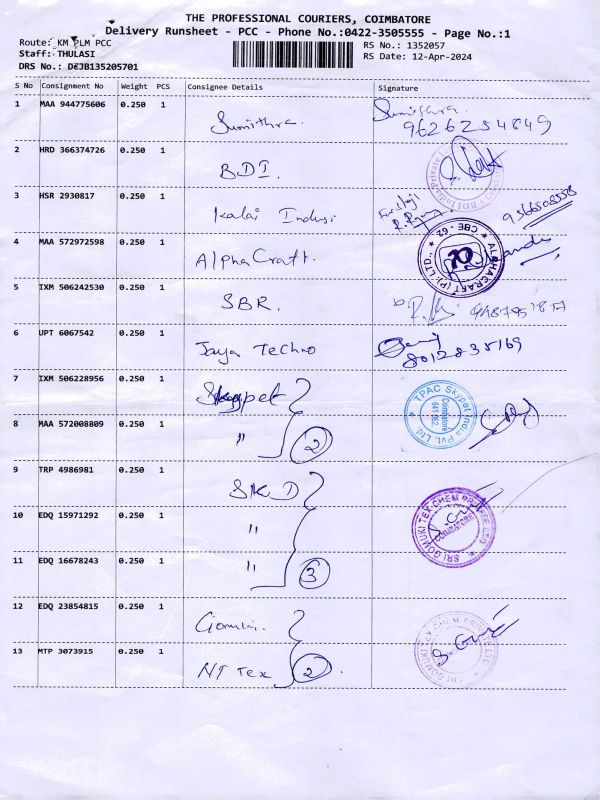 THE PROFESSIONAL COURIERS, COIMBATORE
Delivery Runsheet - PCC - Phone No.:0422-3505555 - Page No.:1
Route: KM PLM PCC
RS No.: 1352057
Staff: THULASI
RS Date: 12-Apr-2024
DRS No.: D6JB135205701
S No Consignment No Weight PCS Consignee Details Signature
1 MAA 944775606 0.250 1 Sumithra. Sumithra.
9626254849
2 HRD 366374726 0.250 1 BDI.
3 HSR 2930817 0.250 1 Kalai Indusi 9566508558
4 MAA 572972598 0.250 1 AlphaCraft. ALPHACRAFT (P) LTD., CBE - 62
5 IXM 506242530 0.250 1 SBR.
6 UPT 6067542 0.250 1 Jaya Techno 8012835169
7 IXM 506228956 0.250 1 Skypet TPAC Skypet India Pvt. Ltd. Coimbatore 641 062
8 MAA 572008809 0.250 1 " 2
9 TRP 4986981 0.250 1 SKD
10 EDQ 15971292 0.250 1 " SRI GOMUKI TEX CHEM PRIVATE LTD COIMBATORE
11 EDQ 16678243 0.250 1 " 3
12 EDQ 23854815 0.250 1 Gomuki.
13 MTP 3073915 0.250 1 NT Tex 2.